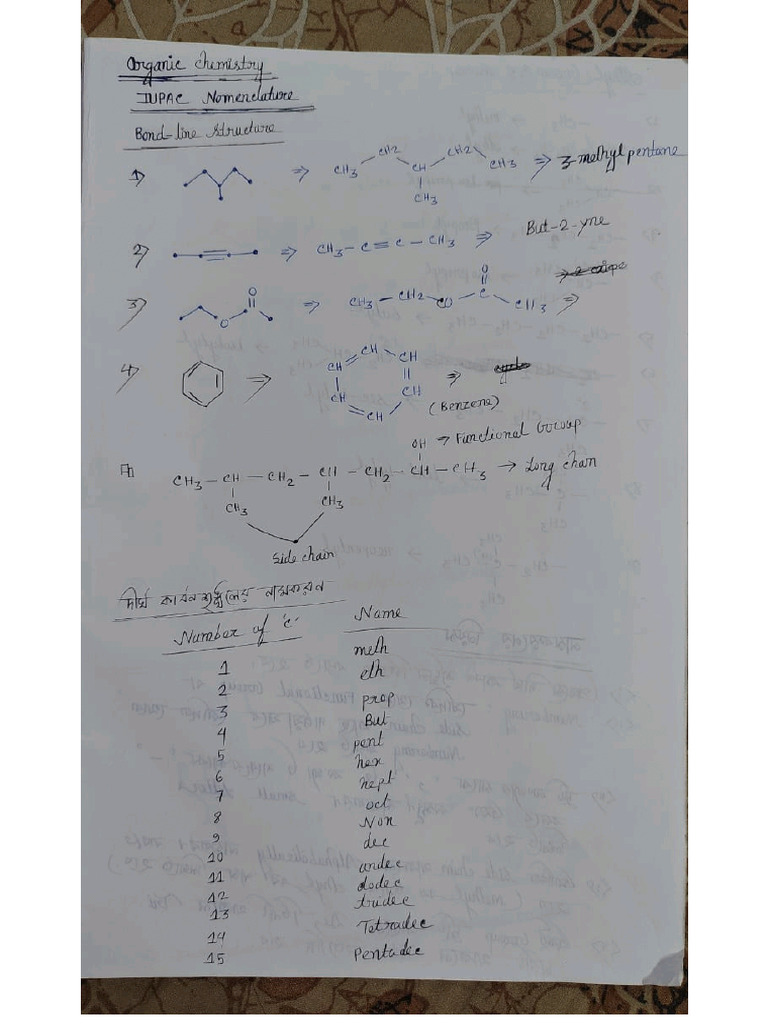 Organic chemistry
IUPAC Nomenclature
Bond-line structure
1) ⇒ CH3 CH2 CH CH2 CH3 CH3 ⇒ 3-methyl pentane
2) ⇒ CH3 - C ≡ C - CH3 ⇒ But-2-yne
3) O O ⇒ CH3 - CH2 O C O CH3 ⇒
4) ⇒ CH CH CH CH CH CH ⇒
(Benzene)
OH → Functional Group
CH3 - CH - CH2 - CH - CH2 - CH - CH3 → Long chain
CH3 CH3
side chain
দীর্ঘ কার্বন শৃঙ্খলের নামকরন
Number of 'c' Name
1 meth
2 eth
3 prop
4 But
5 pent
6 hex
7 hept
8 oct
9 Non
10 dec
11 undec
12 dodec
13 tridec
14 Tetradec
15 Pentadec